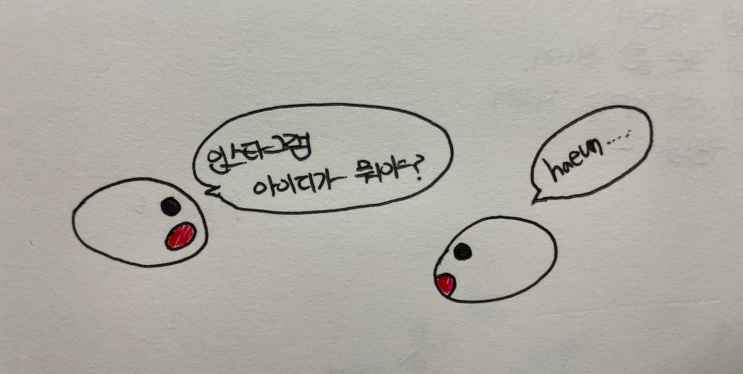 인스타그램
아이디가 뭐야?
haeun.....